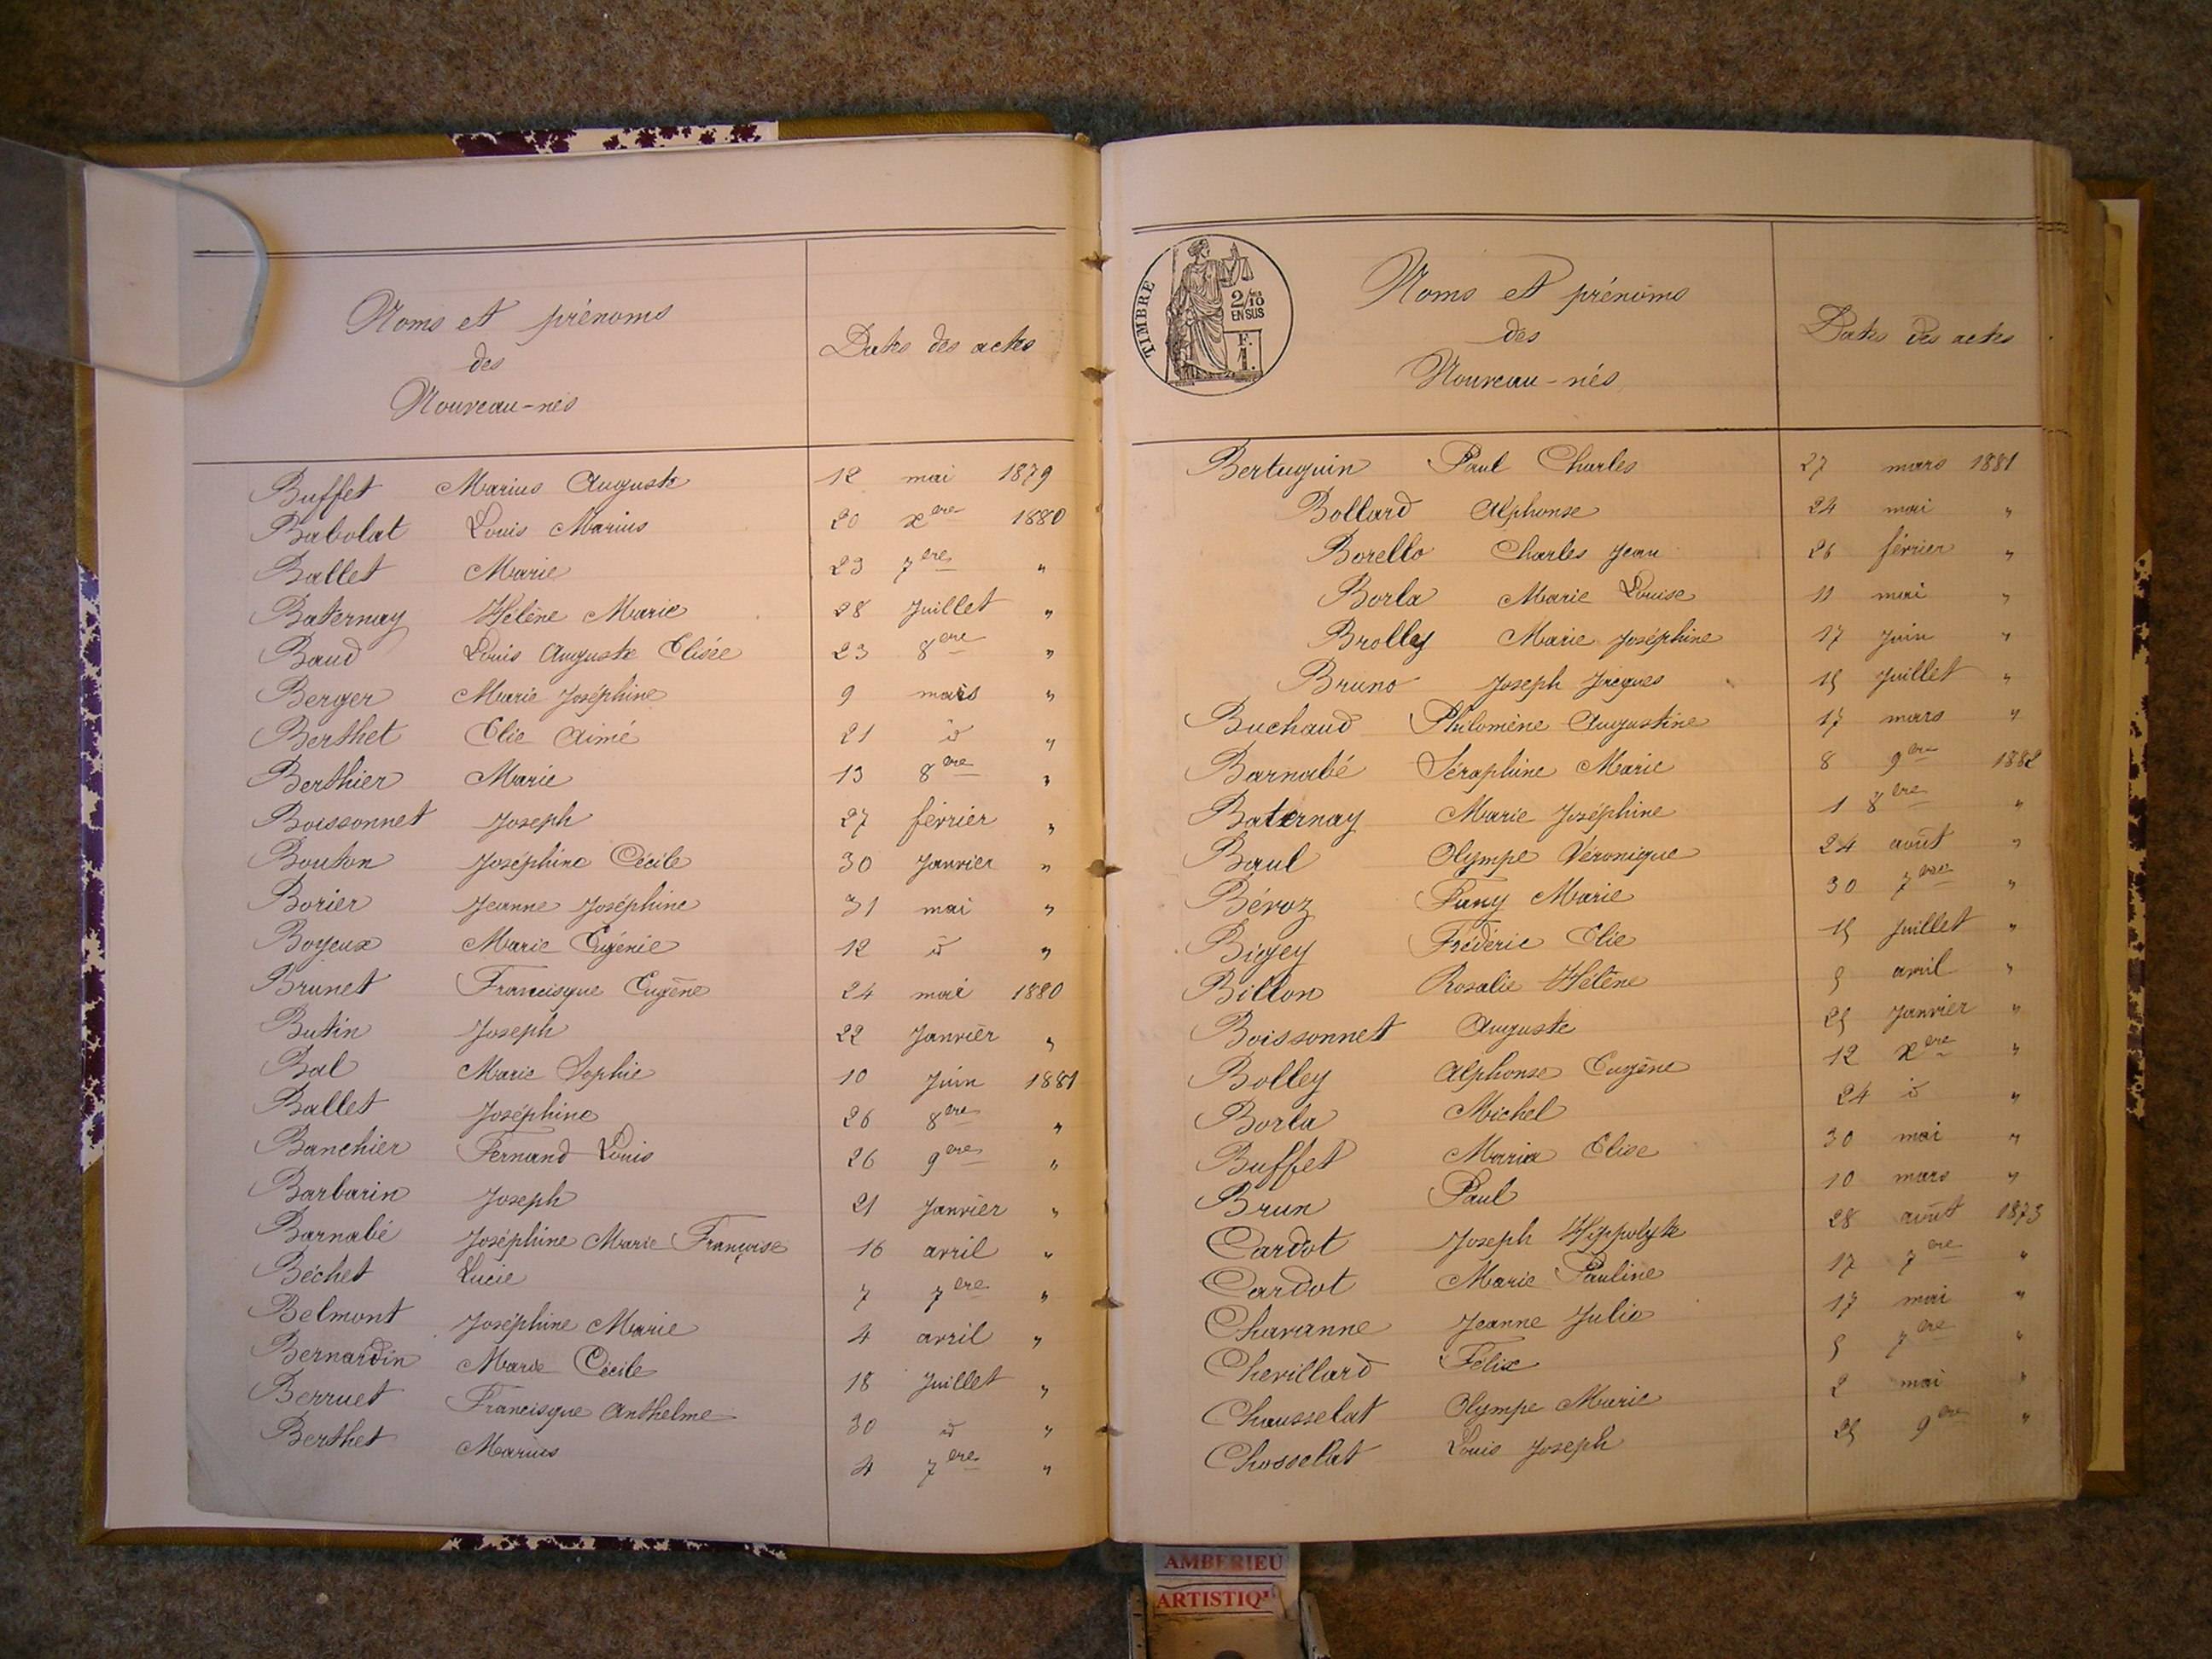 Noms et prénoms
des
Nouveau-nés
Dates des actes
Buffet Marius Auguste 12 mai 1879
Babolat Louis Marius 20 xbre 1880
Ballet Marie 23 7bre "
Baternay Hélène Marie 28 Juillet "
Baud Louis Auguste Elisée 23 8bre "
Berger Marie Joséphine 9 mars "
Berthet Elie Aimé 21 id "
Berthier Marie 13 8bre "
Boissonnet Joseph 27 février "
Bouton Joséphine Cécile 30 Janvier "
Borier Jeanne Joséphine 31 mai "
Boyeux Marie Eugénie 12 id "
Brunet Francisque Eugène 24 mai 1880
Butin Joseph 22 Janvier "
Bal Marie Sophie 10 Juin 1881
Ballet Joséphine 26 8bre "
Banchier Fernand Louis 26 9bre "
Barbarin Joseph 21 Janvier "
Barnabé Joséphine Marie Françoise 16 avril "
Béchet Lucie 7 7bre "
Belmont Joséphine Marie 4 avril "
Bernardin Marie Cécile 18 Juillet "
Berruet Francisque Anthelme 30 id "
Berthet Marius 4 7bre "
TIMBRE
2/10
EN SUS
F.
1.
Noms et prénoms
des
Nouveau-nés
Dates des actes
Bertuguin Paul Charles 27 mars 1881
Bollard Alphonse 24 mai "
Borello Charles Jean 26 février "
Borla Marie Louise 11 mai "
Brolly Marie Joséphine 17 Juin "
Bruno Joseph Jacques 15 Juillet "
Buchaud Philomène Augustine 17 mars "
Barnabé Séraphine Marie 8 9bre 1882
Baternay Marie Joséphine 1 8bre "
Baul Olympe Véronique 24 août "
Bévoz Fany Marie 30 7bre "
Bigey Frédéric Elie 15 Juillet "
Billon Rosalie Hélène 5 avril "
Boissonnet Auguste 25 Janvier "
Bolley Alphonse Eugène 12 xbre "
Borla Michel 24 id "
Buffet Maria Elise 30 mai "
Brun Paul 10 mars "
Cardot Joseph Hippolyte 28 août 1873
Cardot Marie Pauline 17 7bre "
Chavanne Jeanne Julie 17 mai "
Chevillard Félix 5 7bre "
Chausselat Olympe Marie 2 mai "
Chosselat Louis Joseph 25 9bre "
AMBERIEU
ARTISTIQU